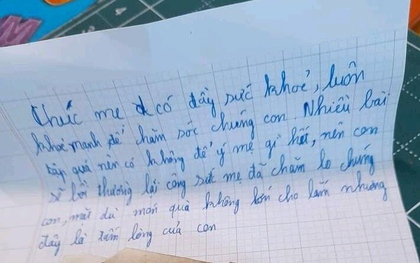 Chúc mẹ có đầy sức khoẻ, luôn
khoẻ mạnh để chăm sóc chúng con. Nhiều bài
tập quá nên có không để ý mẹ gì hết, nên con
sẽ bồi thường lại công sức mẹ đã chăm lo chúng
con, mặt dù món quà không lớn cho lắm nhưng
đây là tấm lòng của con